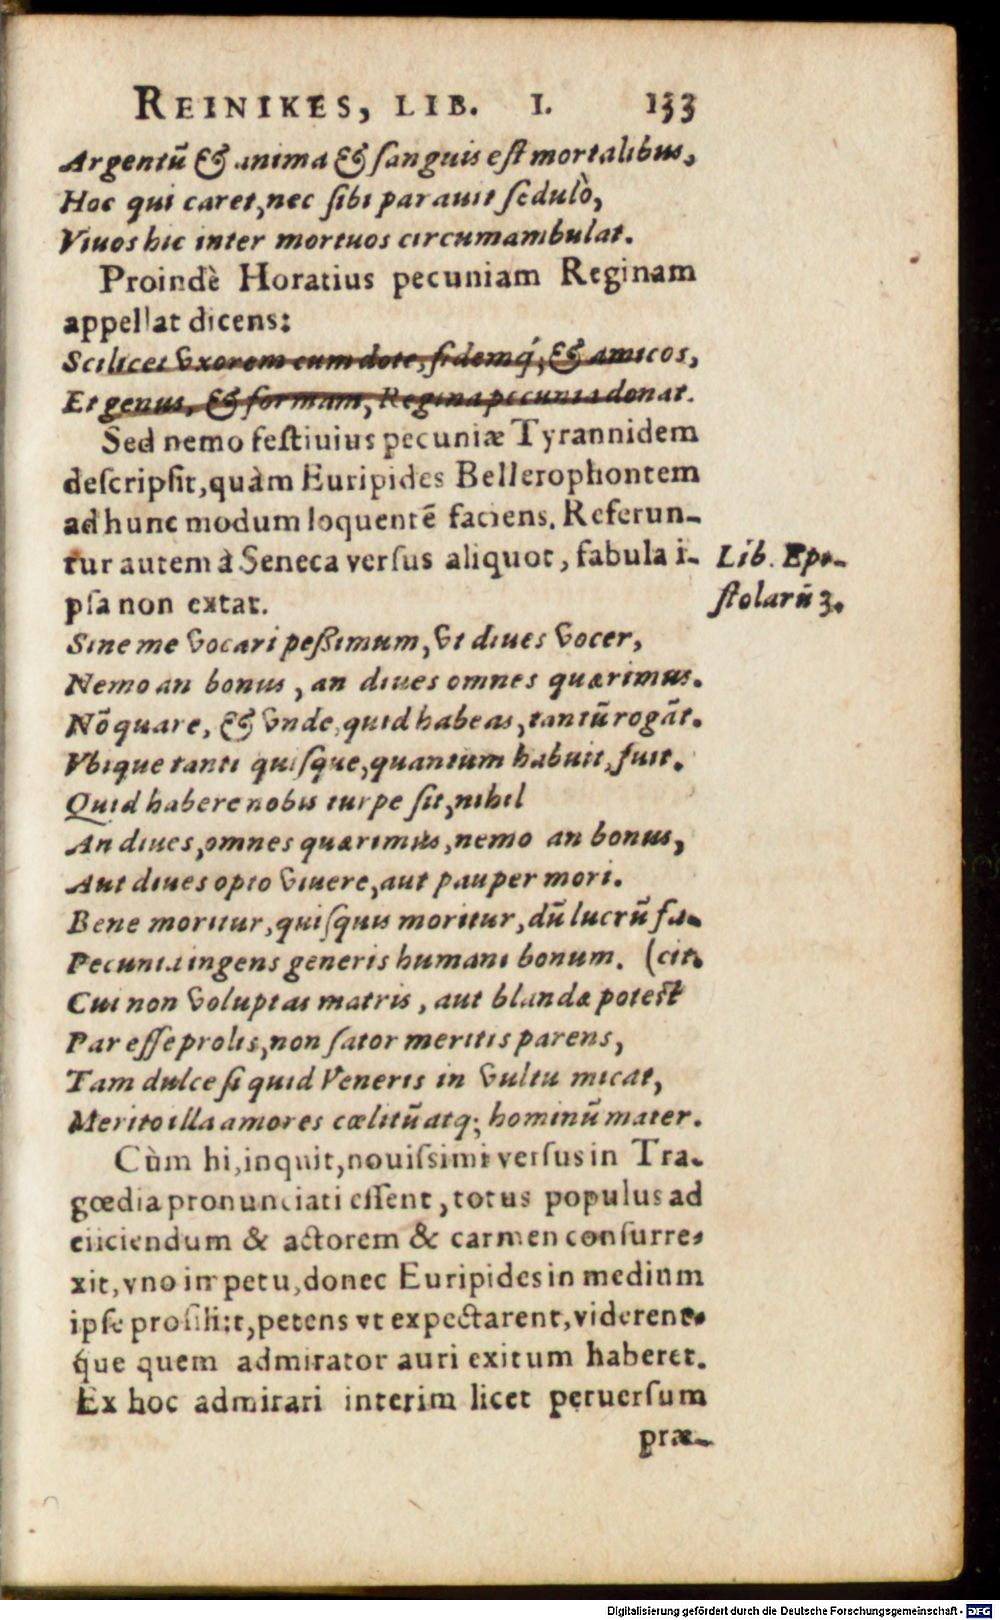 REINIKES, LIB. I. 133
Argentū & anima & ſanguis eſt mortalibus,
Hoc qui caret, nec ſibi parauit ſedulò,
Viuos hic inter mortuos circumambulat.
Proindè Horatius pecuniam Reginam
appellat dicens:
Scilicet vxorem cum dote, fidemq́;, & amicos,
Et genus, & formam, Regina pecunia donat.
Sed nemo feſtiuius pecuniæ Tyrannidem
deſcripſit, quàm Euripides Bellerophontem
ad hunc modum loquentē faciens. Referun-
tur autem à Seneca verſus aliquot, fabula i-
pſa non extat.
Lib. Epi-
ſtolarū 3.
Sine me vocari peßimum, vt diues vocer,
Nemo an bonus, an diues omnes quærimus.
Nō quare, & vnde, quid habeas, tantū rogāt.
Vbique tanti quiſque, quantum habuit, fuit.
Quid habere nobis turpe ſit, nihil
An diues, omnes quærimus, nemo an bonus,
Aut diues opto viuere, aut pauper mori.
Bene moritur, quiſquis moritur, dū lucrū fa-
Pecunia ingens generis humani bonum. (cit.
Cui non voluptas matris, aut blandæ poteſt
Par eſſe prolis, non ſator meritis parens,
Tam dulce ſi quid Veneris in vultu micat,
Merito illa amores cœlitū atq; hominū mater.
Cùm hi, inquit, nouiſsimi verſus in Tra-
gœdia pronunciati eſſent, totus populus ad
eiiciendum & actorem & carmen conſurre-
xit, vno impetu, donec Euripides in medium
ipſe proſiliit, petens vt expectarent, viderent-
que quem admirator auri exitum haberet.
Ex hoc admirari interim licet peruerſum
præ-
Digitalisierung gefördert durch die Deutsche Forschungsgemeinschaft - DFG